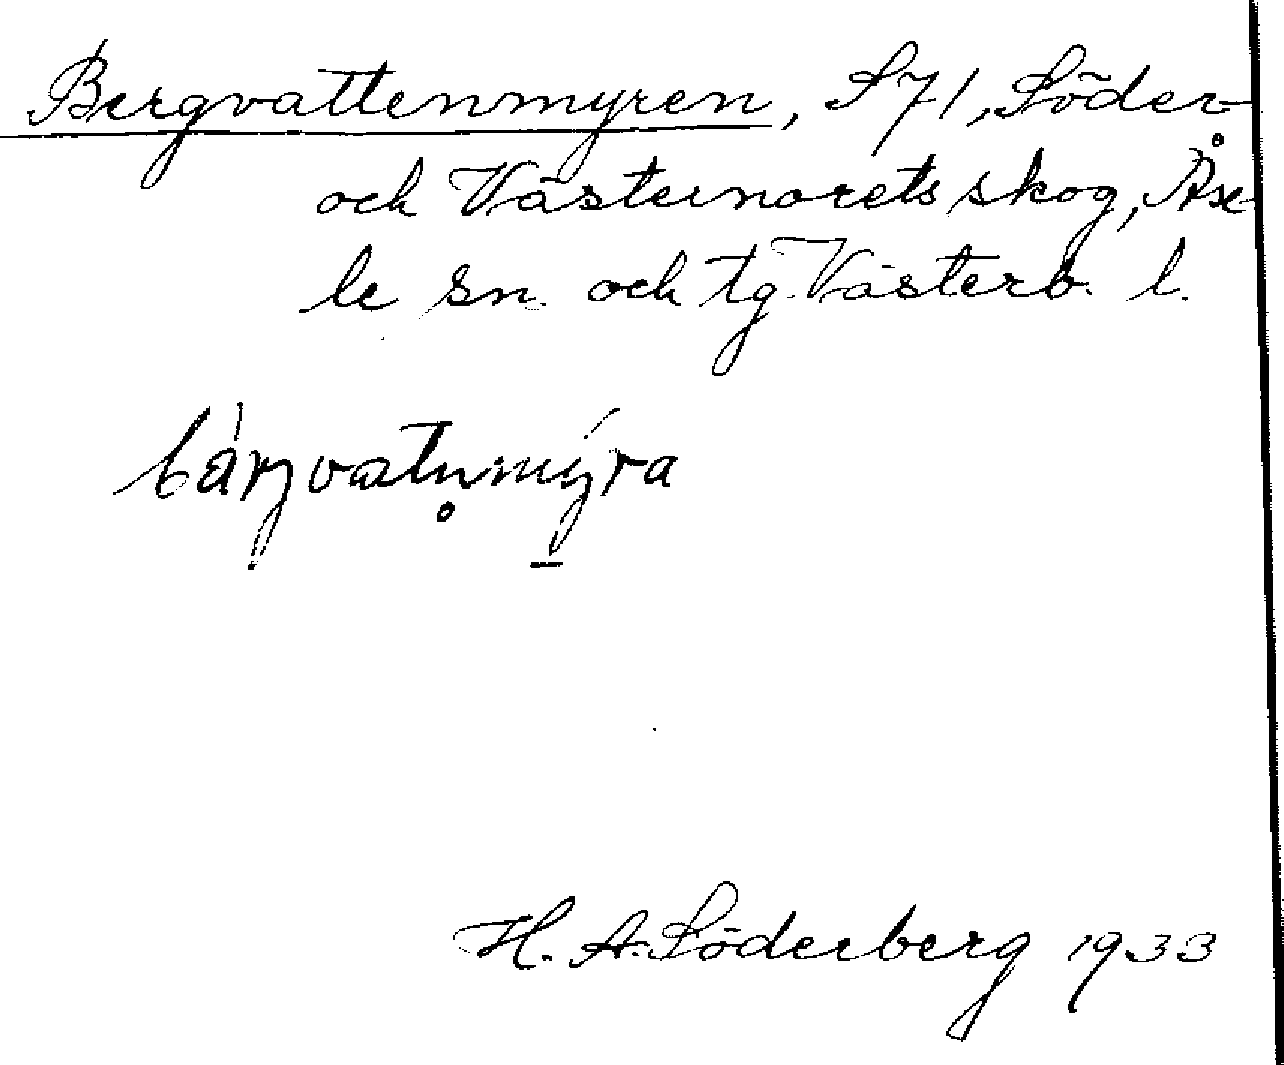 Bergvattenmyren, S71, Söder-
och Västernorets skog, Åse-
le sn. och tg. Västerb. l.
bárjvatn̥mýra
H. A. Söderberg 1933